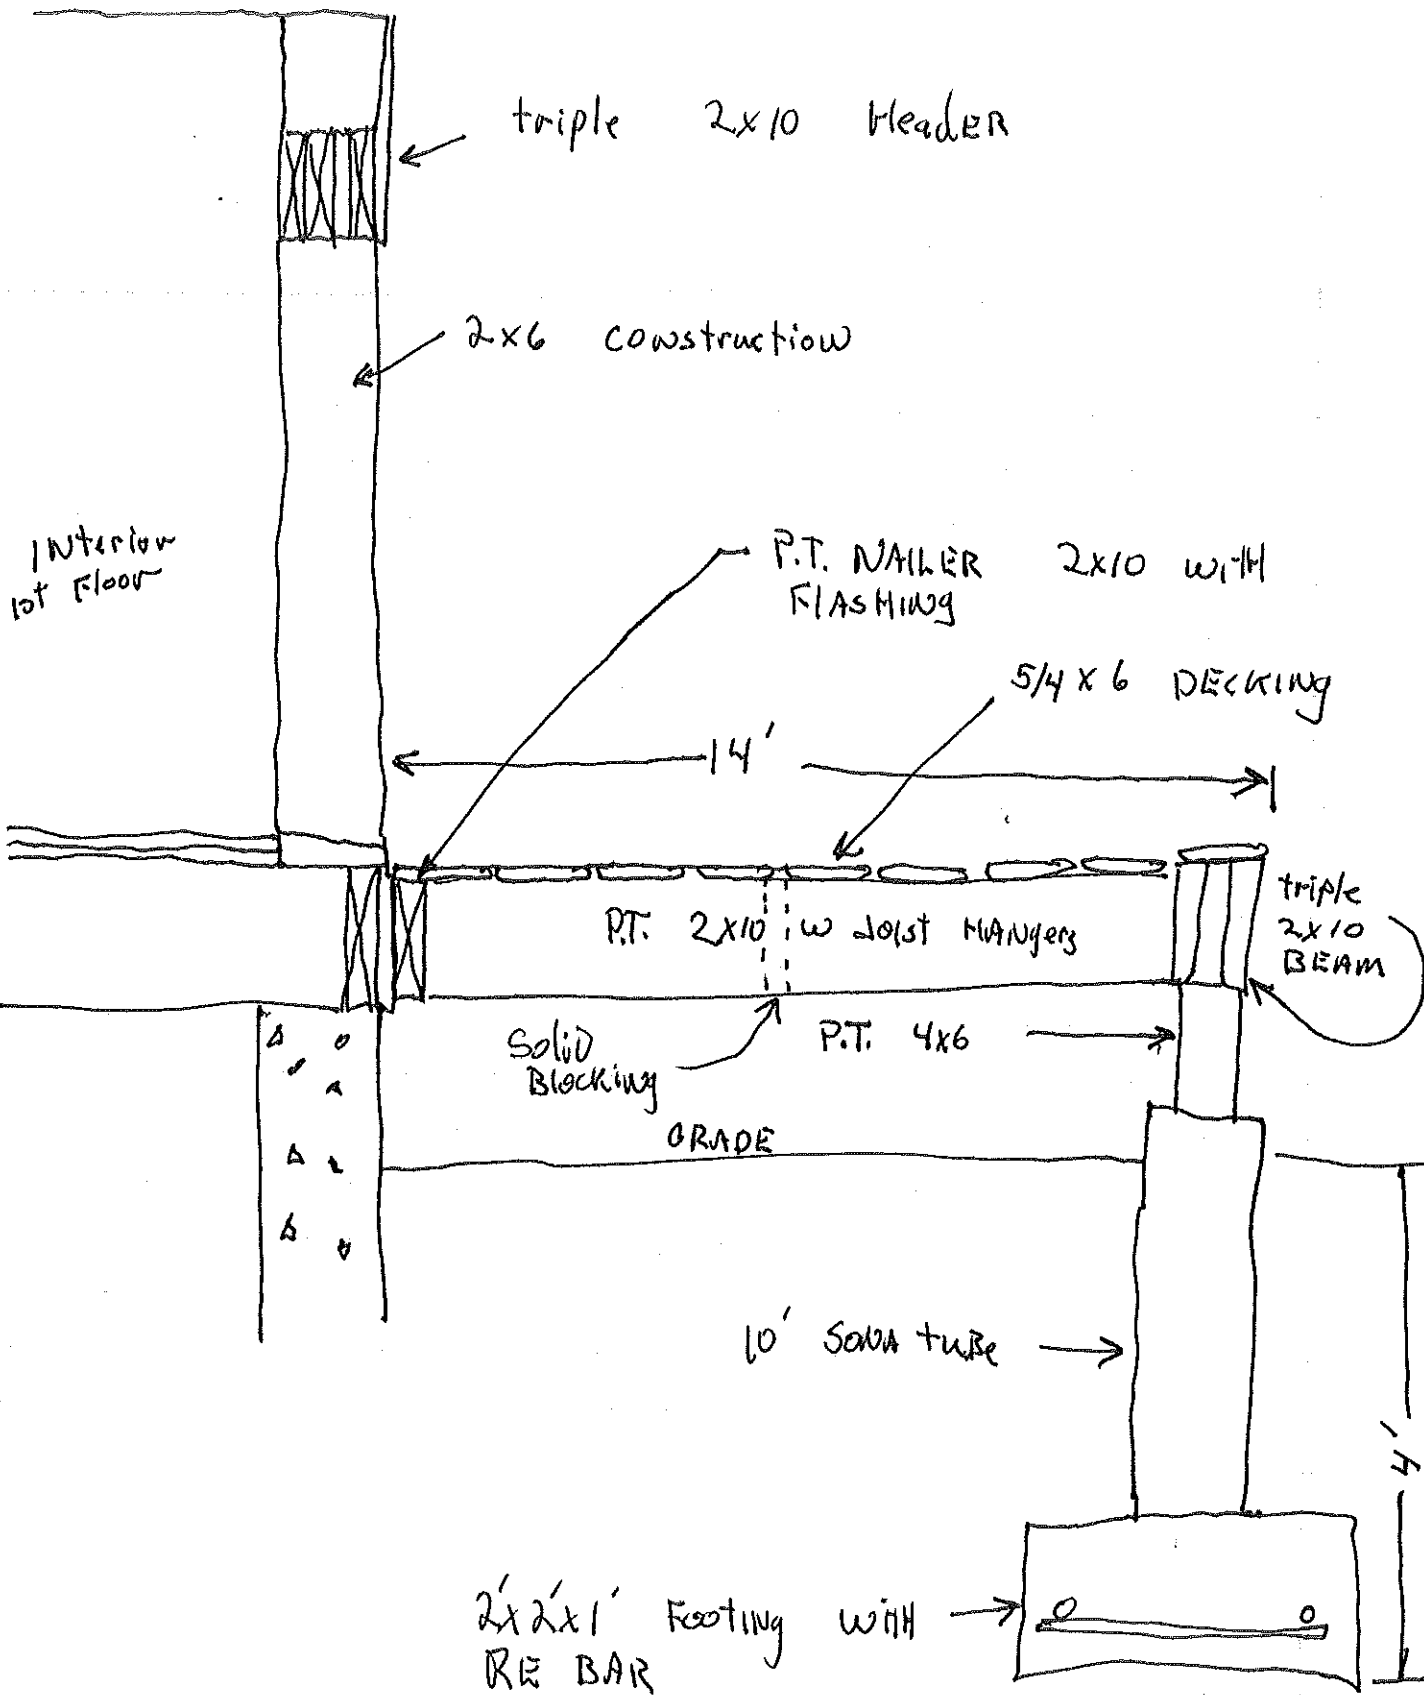 triple 2x10 HeadER
2x6 construction
INterior
1st Floor
P.T. NAILER 2x10 with
FlAsHiNg
5/4 x 6 DECKiNg
14'
P.T. 2x10 w Joist HANgers
triple
2x10
BEAM
Solid
Blocking
P.T. 4x6
GRADE
10' SONA tuBe
4'
2'x2'x1' Footing with
RE BAR